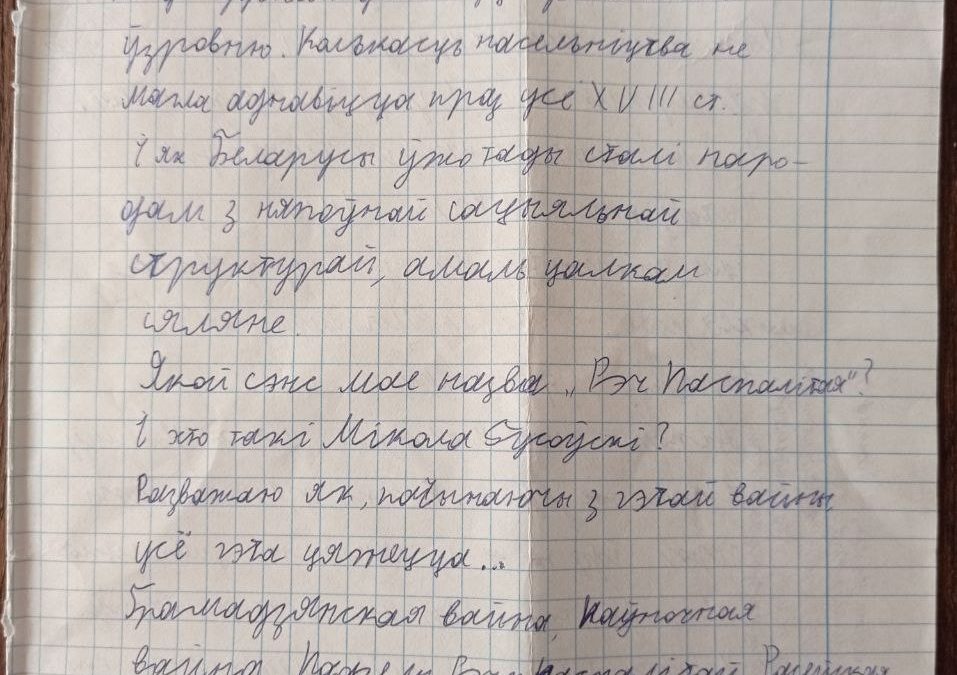 ўзроўню. Колькасць насельніцтва не
магла аднавіцца праз усё XVIII ст.
І як Беларусы ўжо тады сталі наро-
дам з няпоўнай сацыяльнай
структурай, амаль цалкам
сяляне.
Якой сэнс мае назва „Рэч Паспалітая"?
І хто такі Мікола Гусоўскі?
Разважаю як, пачынаючы з гэтай вайны,
усё гэта цяжецца...
Грамадзянская вайна, Паўночная
вайна,